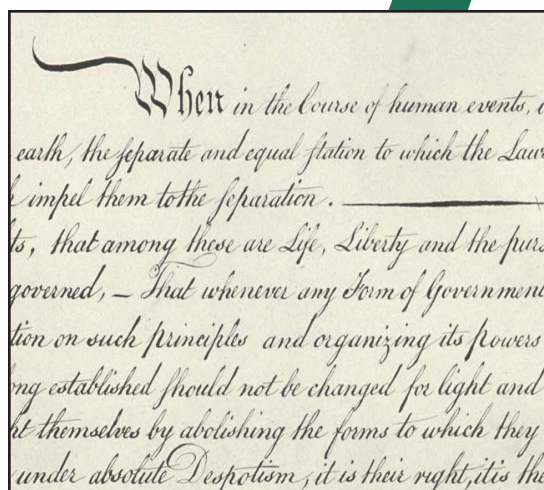 When in the Course of human events, i
earth, the ſeparate and equal ſtation to which the Law
h impel them to the ſeparation.
ts, that among these are Life, Liberty and the purs
governed, — That whenever any Form of Government
tion on such principles and organizing its powers
ong established ſhould not be changed for light and
ht themselves by abolishing the forms to which they
under absolute Despotism, it is their right, it is the